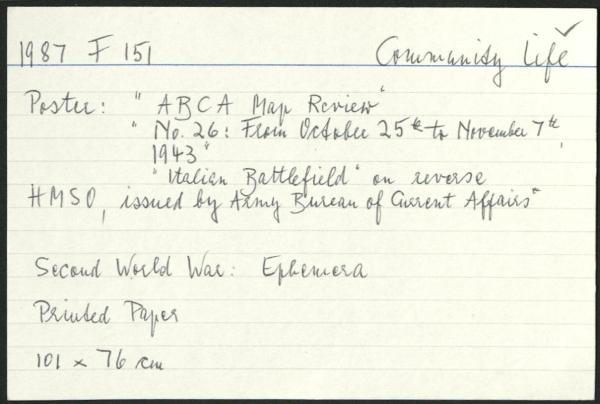 1987 F 151 Community Life
Poster: "ABCA Map Review"
"No. 26: From October 25th to November 7th,
1943"
"Italian Battlefield" on reverse
HMSO, issued by Army Bureau of Current Affairs"
Second World War: Ephemera
Printed Paper
101 x 76 cm